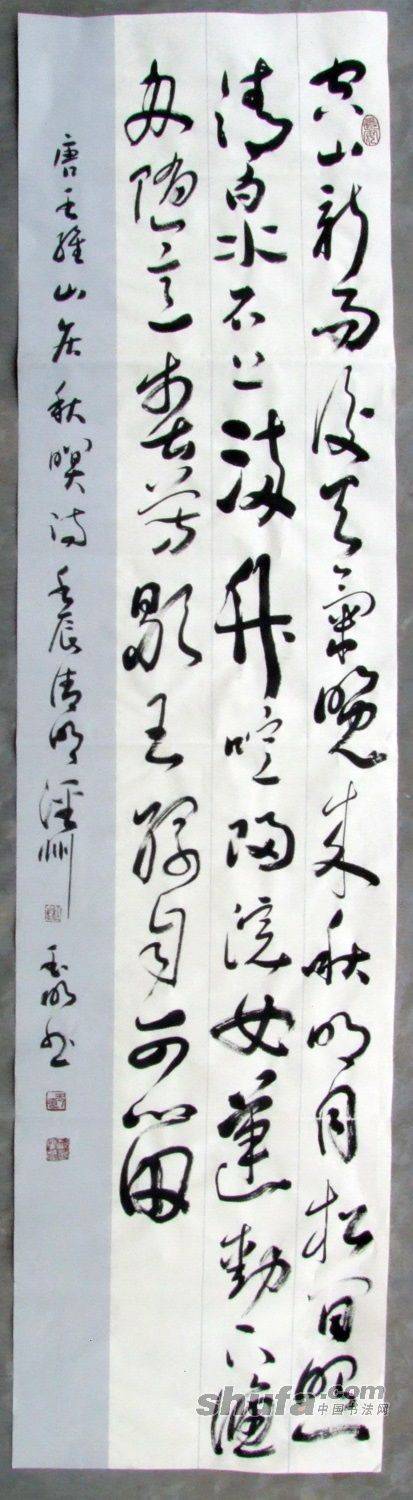 空山新雨後天氣晚來秋明月松間照
清泉石上流竹喧歸浣女蓮動下漁
舟随意春芳歇王孫自可留
唐王維山居秋暝詩壬辰清明涇州玉明书
shufa.com
中国书法网